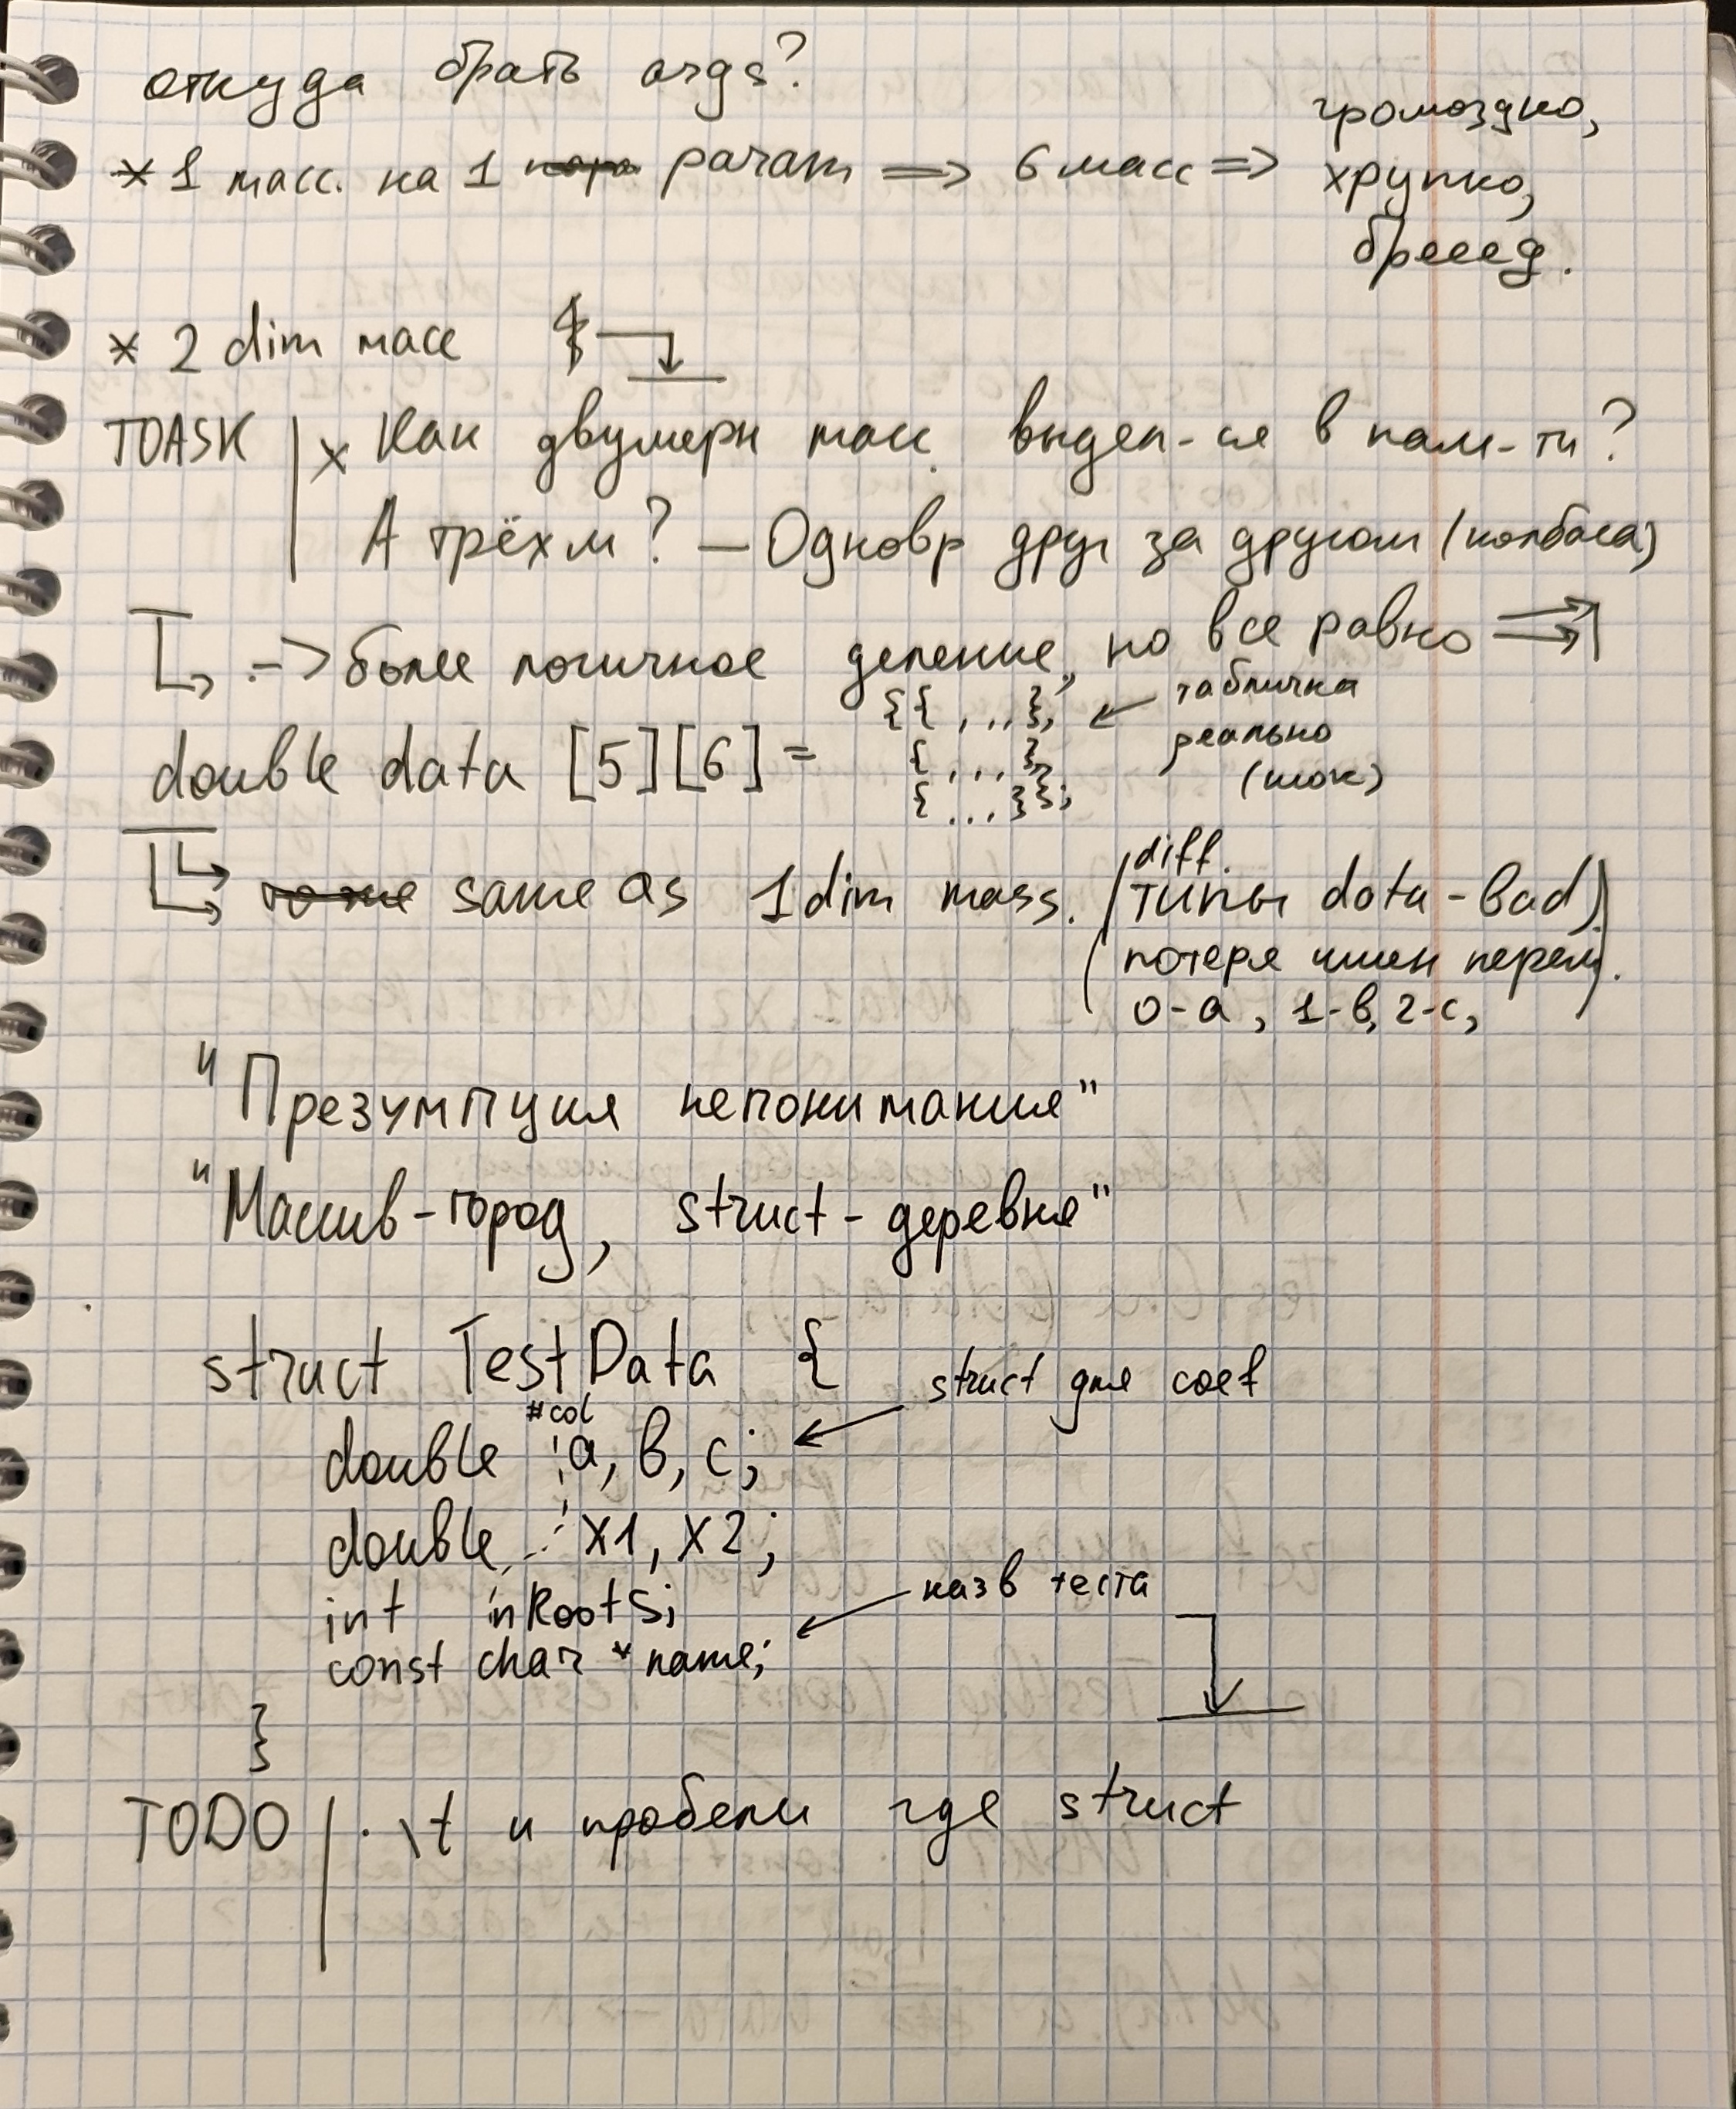 откуда брать args?
* 1 масс. на 1 пара param => 6 масс => громоздко,
хрупко,
брееед.
* 2 dim масс
TOASK | x Как двумерн масс. выдел-ся в пам-ти?
А трёхм? — Одновр друг за другом (колбаса)
-> более логичное деление, но все равно =>
{{ , ..}, <- табличка
реально
(шок)
double data [5][6] = { , ...},
{ ...}};
то же same as 1 dim mass. (diff.
типы data - bad)
(потеря имен перем).
0-a, 1-в, 2-c,
"Презумпция непонимания"
"Массив-город, struct-деревня"
struct TestData {
struct для coef
#col
double a, b, c;
double x1, x2;
назв теста
int nRoots;
const char * name;
}
TODO | . \t и пробелы где struct